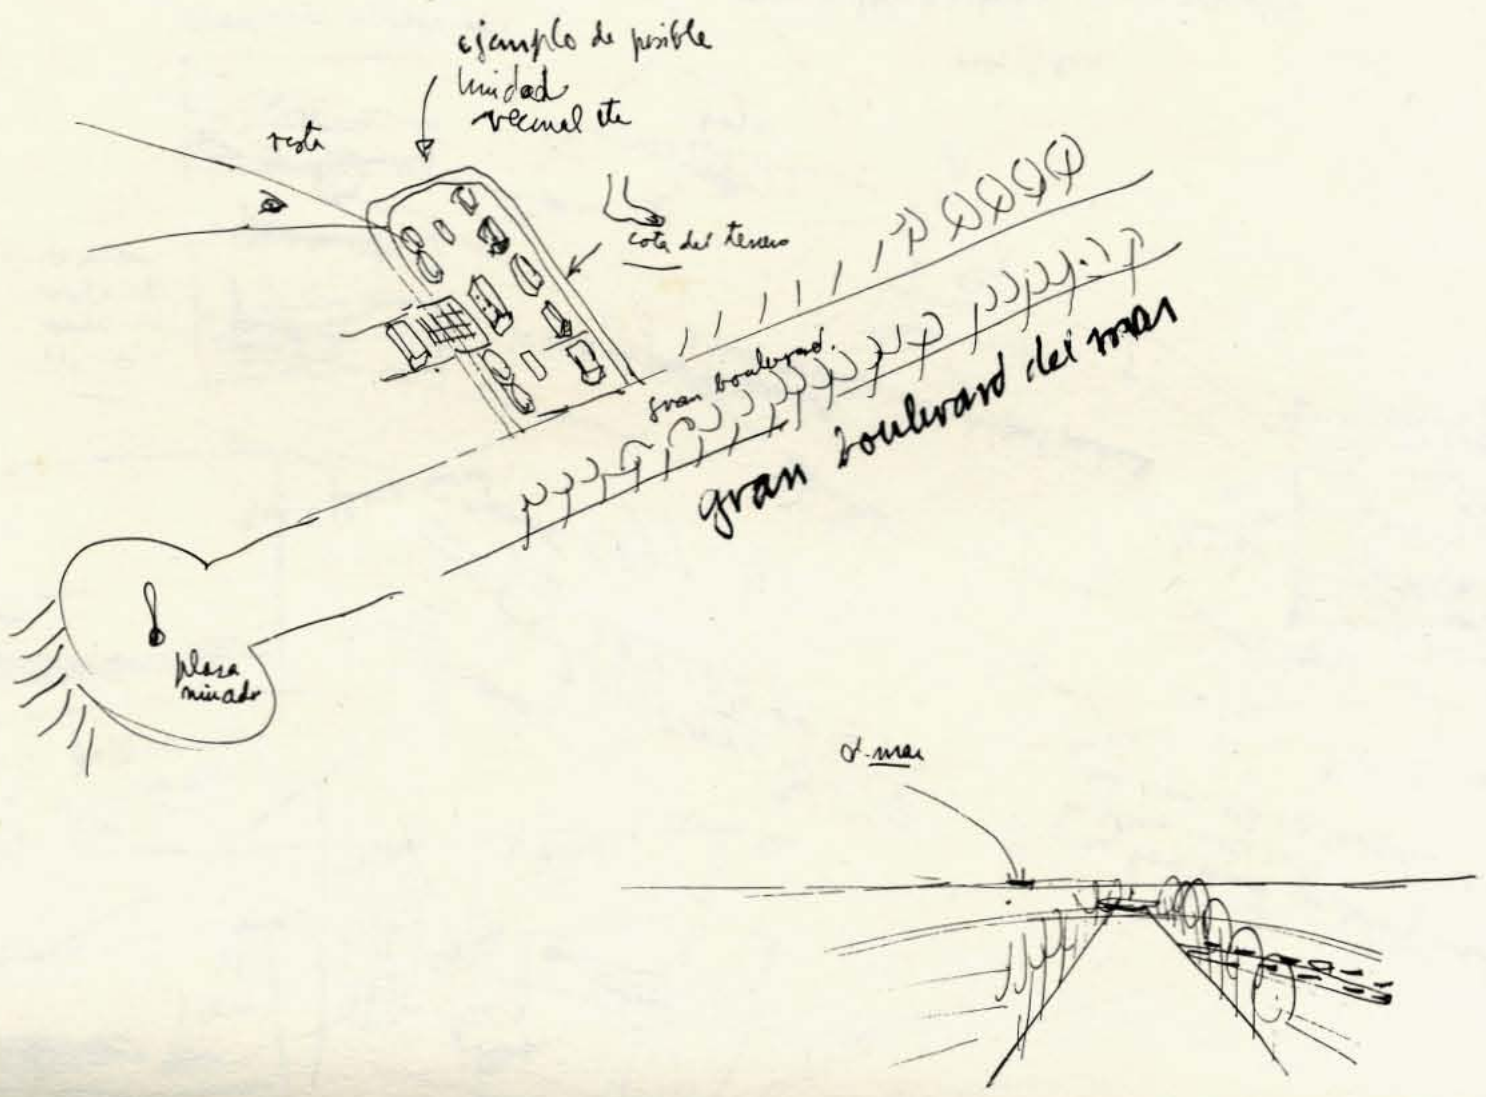 ejemplo de posible
Unidad
vecinal etc
cota del terreno
gran boulevard.
gran boulevard del mar
plaza
mirador
el mar